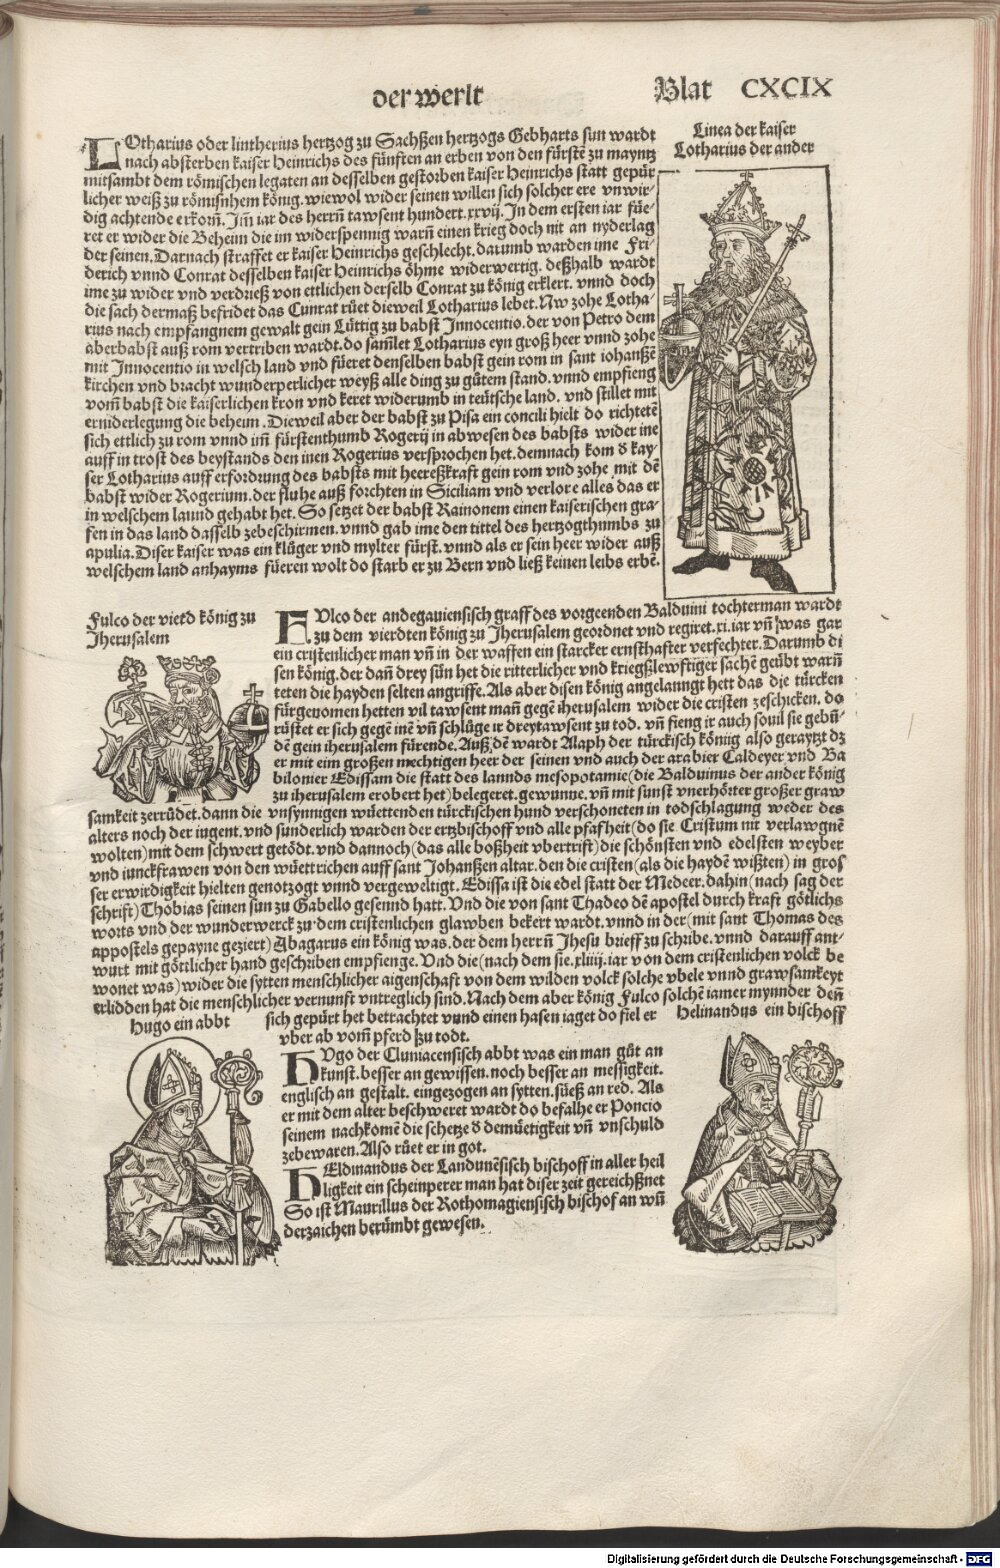 der werlt
Blat CXCIX
Linea der kaiser
Lotharius der ander
LOtharius oder lintherius hertzog zu Sachßen hertzogs Gebharts sun wardt
nach absterben kaiser Heinrichs des fünften an erben von den fürstē zu mayntz
mitsambt dem römischen legaten an desselben gestorben kaiser Heinrichs statt gepür
licher weiß zu römischem könig. wiewol wider seinen willen sich solcher ere vnwir-
dig achtende erkorn̄. Jm̄ iar des herrn̄ tawsent hundert. xxvij. Jn dem ersten iar füe-
ret er wider die Beheim die im widerspennig warn̄ einen krieg doch nit an nyderlag
der seinen. Darnach straffet er kaiser Heinrichs geschlecht. darumb warden ime Fri-
derich vnnd Conrat desselben kaiser Heinrichs öhme widerwertig. deßhalb wardt
ime zu wider vnd verdrieß von ettlichen derselb Conrat zu könig erklert. vnnd doch
die sach dermaß befridet das Cunrat rüet dieweil Lotharius lebet. Nw zohe Lotha-
rius nach empfangnem gewalt gein Lüttig zu babst Jnnocentio. der von Petro dem
aberbabst auß rom vertriben wardt. do sam̄let Lotharius eyn groß heer vnnd zohe
mit Jnnocentio in welsch land vnd füeret denselben babst gein rom in sant iohanßē
kirchen vnd bracht wunderperlicher weyß alle ding zu gütem stand. vnnd empfieng
vom̄ babst die kaiserlichen kron vnd keret widerumb in teütsche land. vnd stillet mit
erniderlegung die beheim. Dieweil aber der babst zu Pisa ein concili hielt do richtetē
sich ettlich zu rom vnnd im̄ fürstenthumb Rogerij in abwesen des babsts wider ine
auff in trost des beystands den inen Rogerius versprochen het. demnach kom d kay-
ser Lotharius auff erfordrung des babsts mit heereßkraft gein rom vnd zohe mit dē
babst wider Rogerium. der fluhe auß forchten in Siciliam vnd verlore alles das er
in welschem laund gehabt het. So setzet der babst Rainonem einen kaiserischen gra-
fen in das land dasselb zebeschirmen. vnnd gab ime den tittel des hertzogthumbs zu
apulia. Diser kaiser was ein klüger vnd mylter fürst. vnnd als er sein heer wider auß
welschem land anhayms füeren wolt do starb er zu Bern vnd ließ keinen leibs erbē.
Fulco der vierd könig zu
Jherusalem
FUlco der andegauiensisch graff des vorgeenden Balduini tochterman wardt
zu dem vierdten könig zu Jherusalem geordnet vnd regiret. xi. iar vn̄ was gar
ein cristenlicher man vn̄ in der waffen ein starcker ernsthafter verfechter. Darumb di
sen könig. der dan̄ drey sün het die ritterlicher vnd kriegßlewftiger sachē geübt warn̄
teten die hayden selten angriffe. Als aber disen könig angelanngt hett das die türcken
fürgenomen hetten vil tawsent man̄ gegē iherusalem wider die cristen zeschicken. do
rüstet er sich gegē inē vn̄ schlüge ir dreytawsent zu tod. vn̄ fieng ir auch souil sie gebn̄-
dē gein iherusalem fürende. Auß dē wardt Alaph der türckisch könig also geraytzt dz
er mit eim großen mechtigen heer der seinen vnd auch der arabier Caldeyer vnd Ba
bilonier Edissam die statt des lannds mesopotamie (die Balduinus der ander könig
zu iherusalem erobert het) belegeret. gewunne. vn̄ mit sunst vnerhörter großer graw
samkeit zerrüdet. dann die vnsynnigen wüettenden türckischen hund verschoneten in todschlagung weder des
alters noch der iugent. vnd sunderlich warden der ertzbischoff vnd alle pfafheit (do sie Cristum nit verlawgnē
wolten) mit dem schwert getödt. vnd dannoch (das alle boßheit vbertrift) die schönsten vnd edelsten weyber
vnd iunckfrawen von den wüettrichen auff sant Johanßen altar. den die cristen (als die haydē wißten) in gros
ser erwirdigkeit hielten genotzogt vnnd vergeweltigt. Edissa ist die edel statt der Medeer. dahin (nach sag der
schrift) Thobias seinen sun zu Gabello gesennd hatt. Vnd die von sant Thadeo dē apostel durch kraft götlichs
worts vnd der wunderwerck zu dem cristenlichen glawben bekert wardt. vnnd in der (mit sant Thomas des
appostels gepayne geziert) Abagarus ein könig was. der dem herrn̄ Jhesu brieff zu schribe. vnnd darauff ant-
wurt mit göttlicher hand geschriben empfienge. Vnd die (nach dem sie. xliiij. iar von dem cristenlichen volck be
wonet was) wider die sytten menschlicher aigenschaft von dem wilden volck solche vbele vnnd grawsamkeyt
erlidden hat die menschlicher vernunft vntreglich sind. Nach dem aber könig Fulco solchē iamer mynnder den̄
sich gepürt het betrachtet vnnd einen hasen iaget do fiel er
vber ab vom̄ pferd zu todt.
Hugo ein abbt
Helinandus ein bischoff
HUgo der Cluniacensisch abbt was ein man güt an
kunst. besser an gewissen. noch besser an messigkeit.
englisch an gestalt. eingezogen an sytten. süeß an red. Als
er mit dem alter beschweret wardt do befalhe er Poncio
seinem nachkomē die schetze d demüetigkeit vn̄ vnschuld
zebewaren. Also rüet er in got.
HEldinandus der Landunēsisch bischoff in aller heil
ligkeit ein scheinperer man hat diser zeit gereichßnet
So ist Maurillus der Rothomagiensisch bischof an wn̄
derzaichen berümbt gewesen.
Digitalisierung gefördert durch die Deutsche Forschungsgemeinschaft - DFG